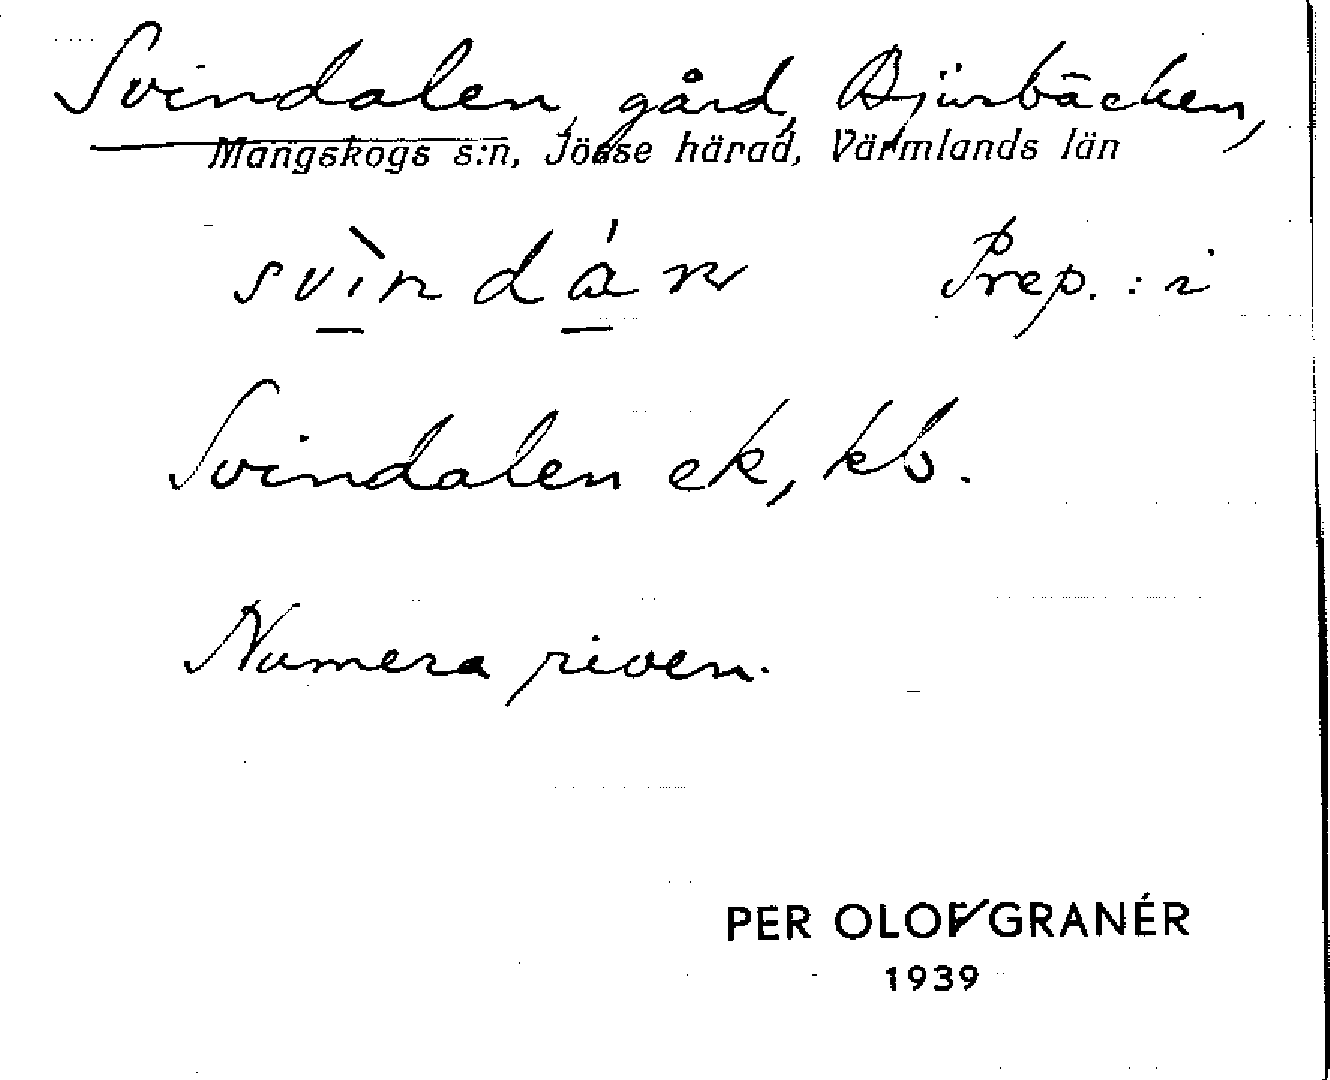 Svindalen, gård, Björbäcken,
Mangskogs s:n, Jösse härad, Värmlands län
svìndán Prep. : i
Svindalen ek, kb.
Numera riven.
PER OLOF GRANÉR
1939